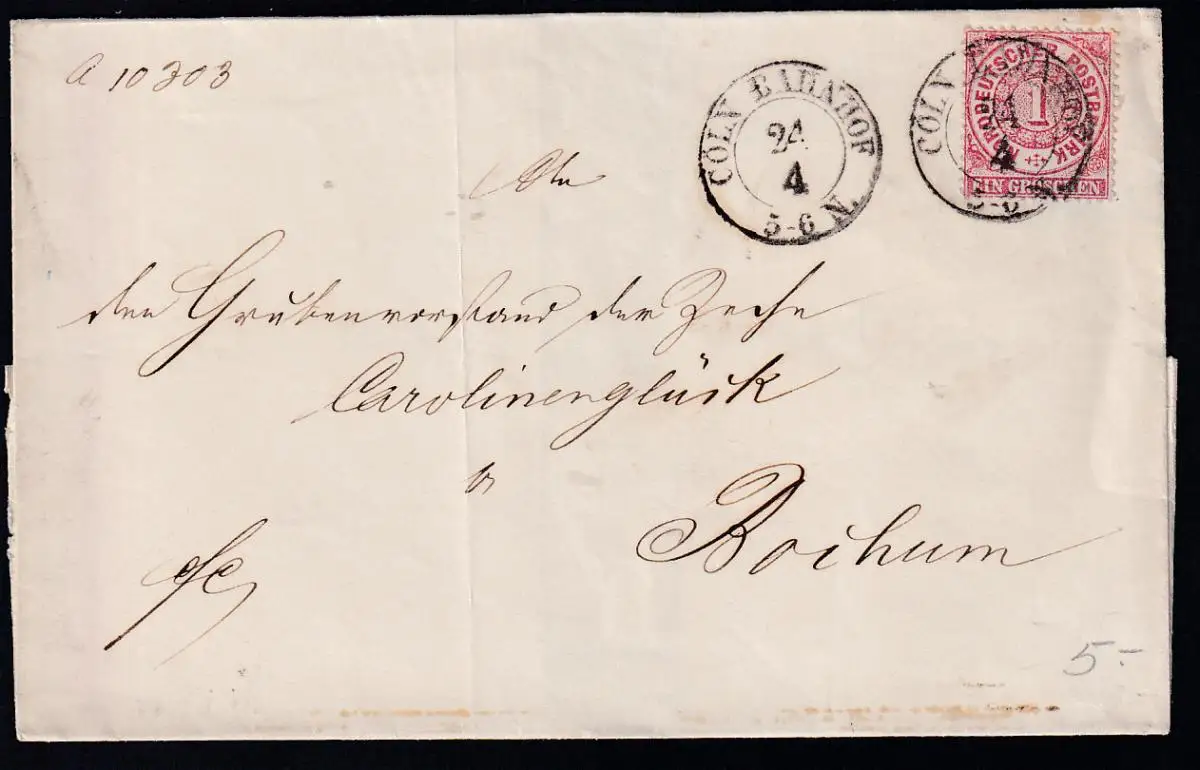 a 10303
CÖLN BAHNHOF
24
4
5-6 N.
CÖLN
24
4
5-6
NORDDEUTSCHER POSTBEZIRK
1
EIN GROSCHEN
An
den Grubenvorstand der Zeche
Carolinenglück
Bochum
5-